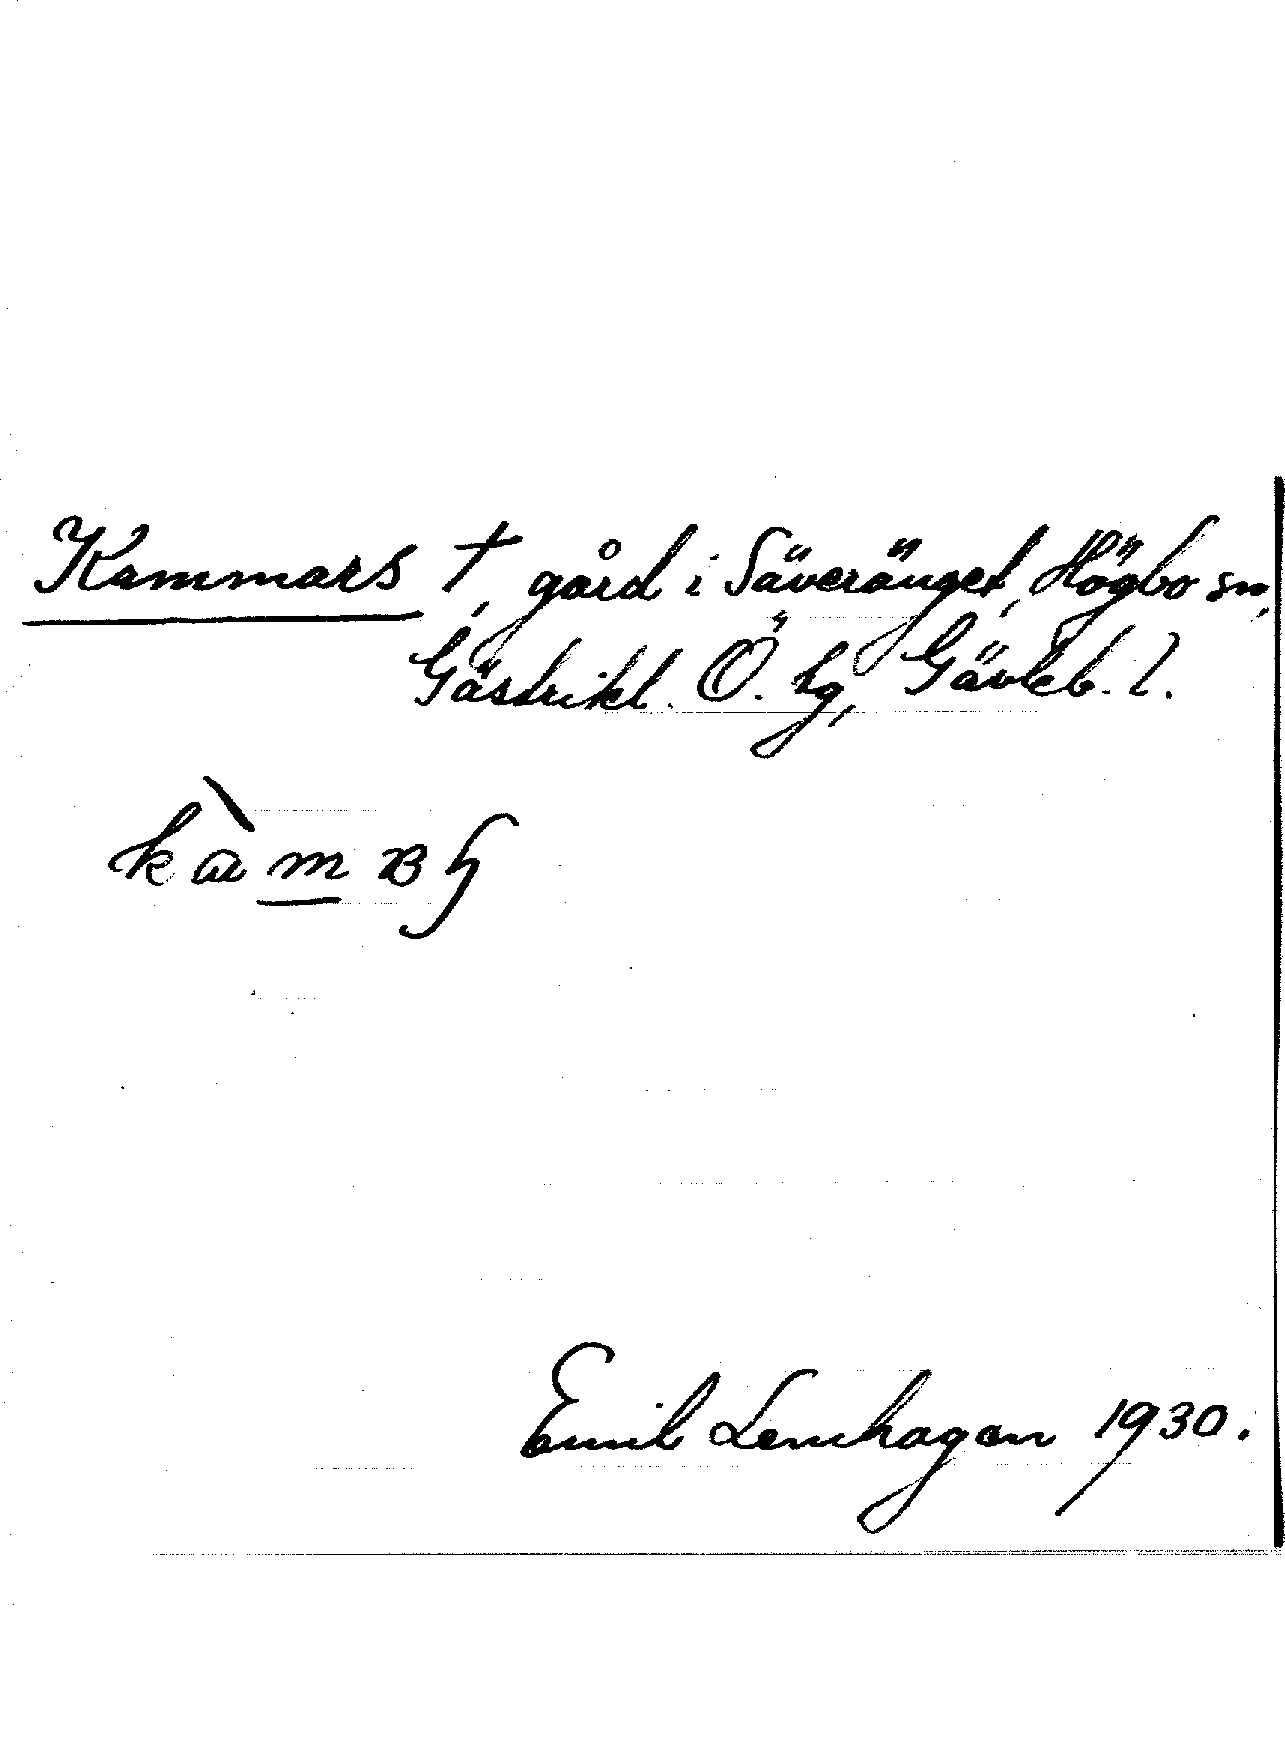 Kammars †, gård i Säveränget, Högbo sn,
Gästrikl. Ö. hg, Gävleb. l.
Emil Lenhagen 1930.